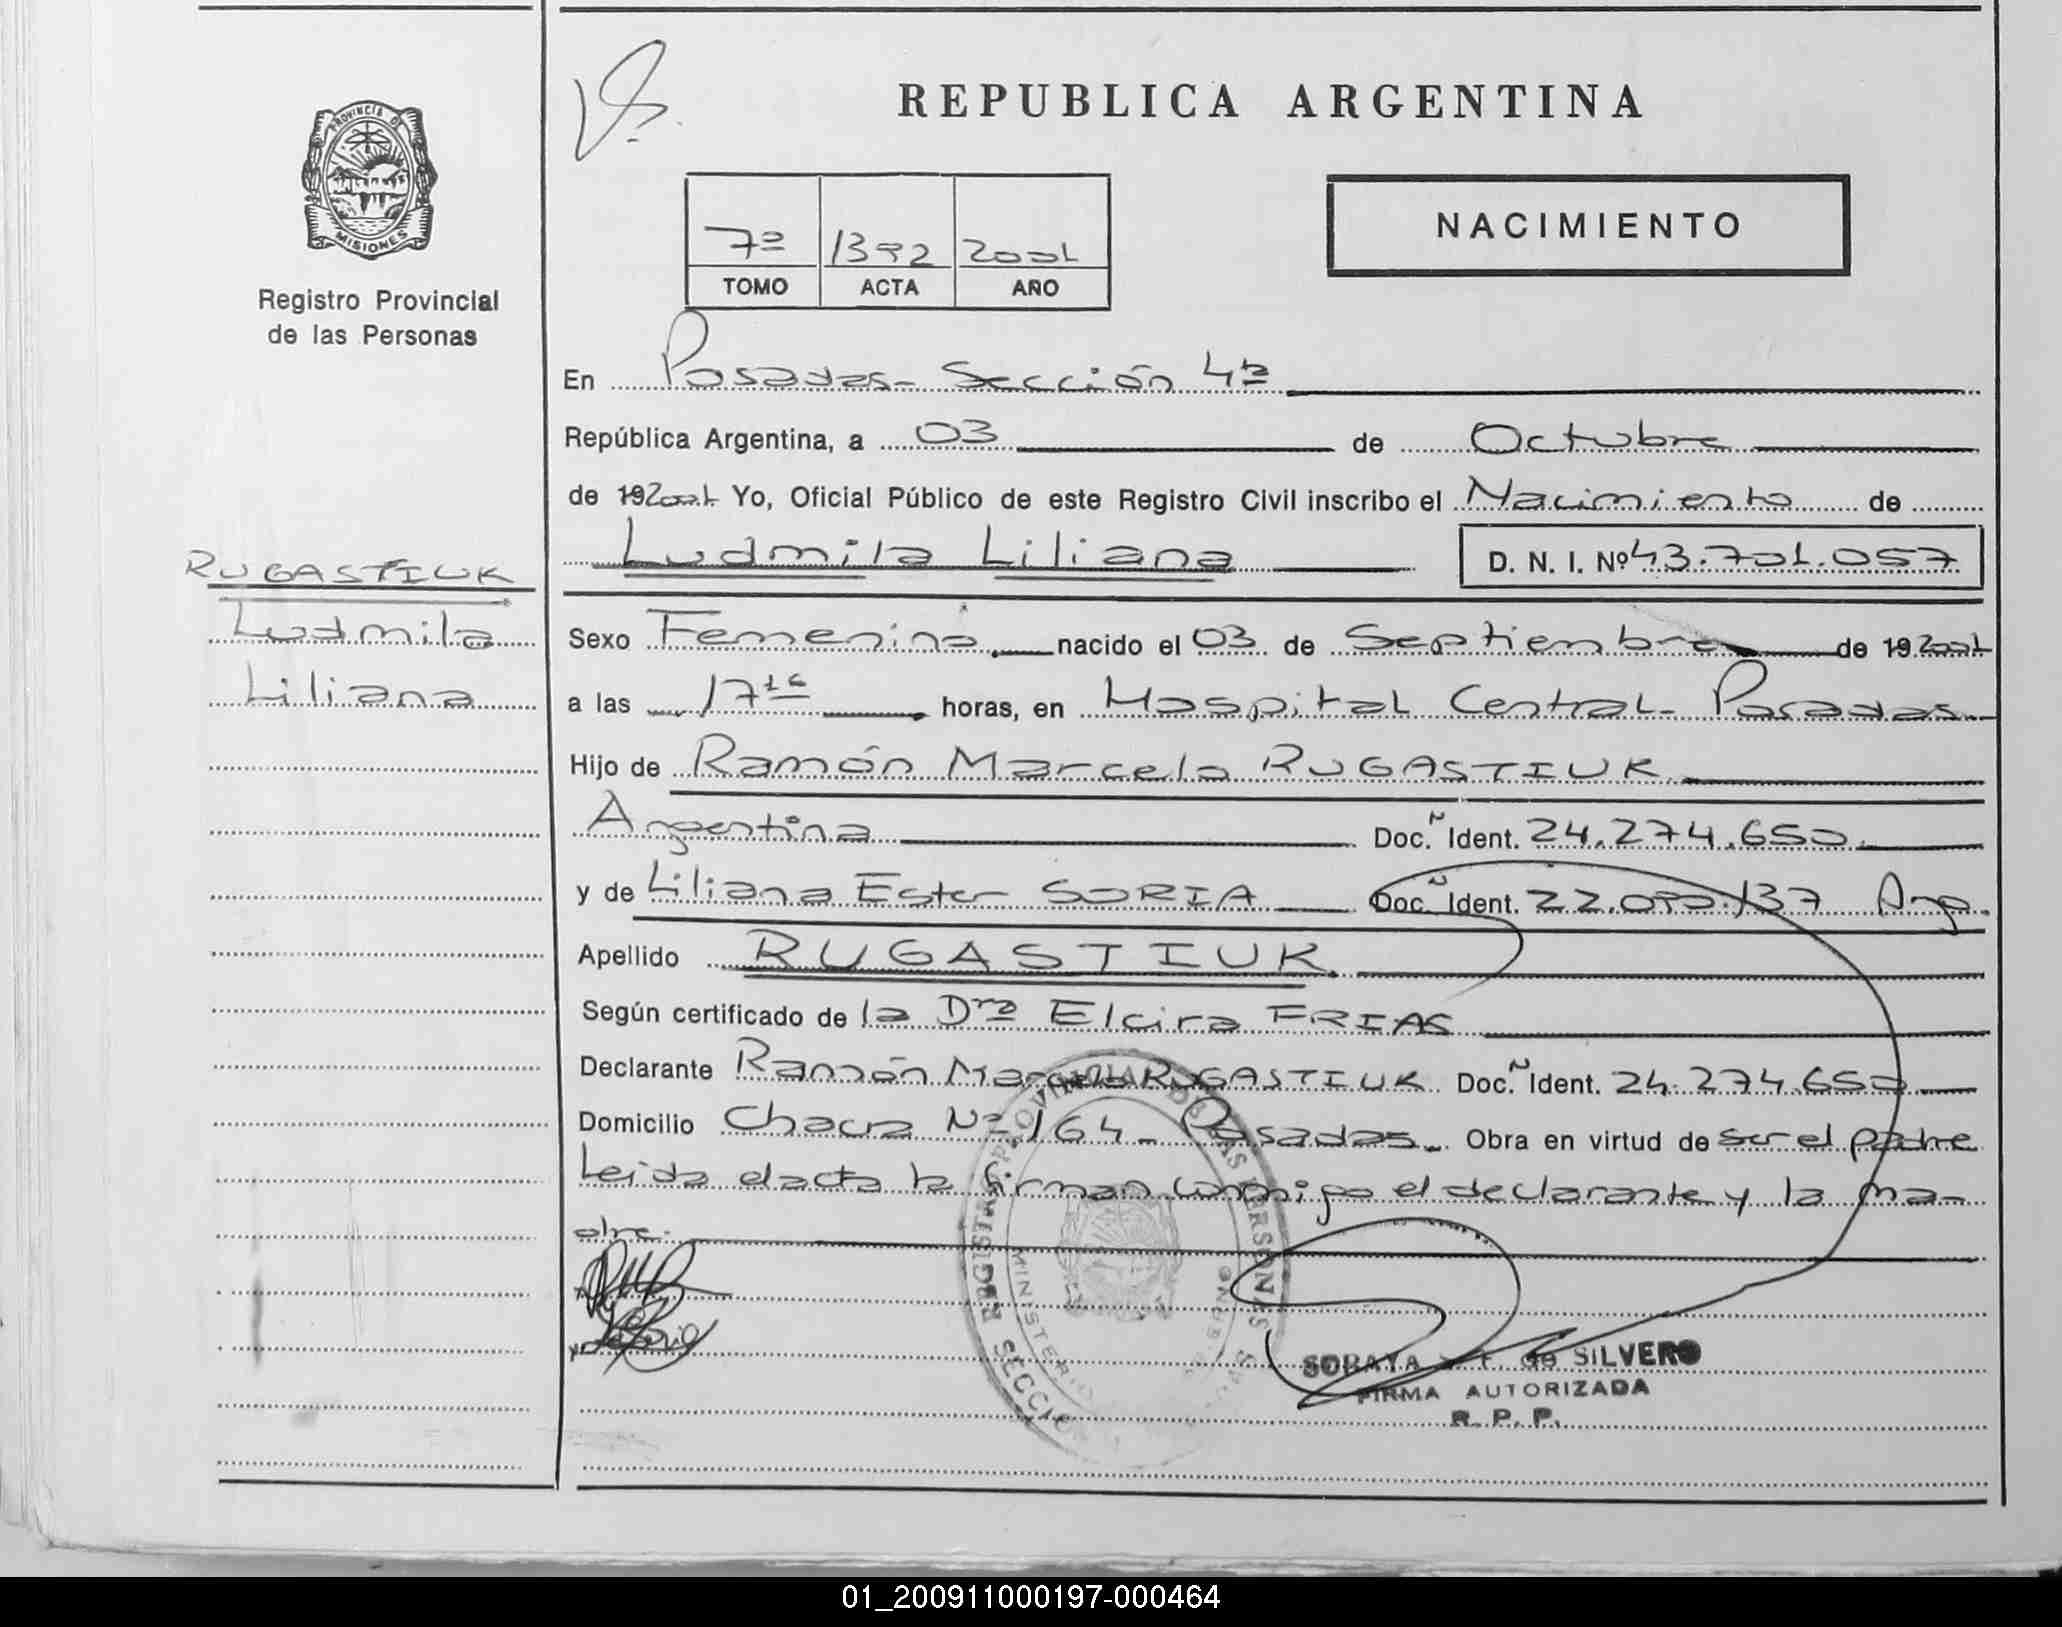 REPUBLICA ARGENTINA
PROVINCIA DE
MISIONES
Registro Provincial
de las Personas
NACIMIENTO
7º 1392 2001
TOMO ACTA AÑO
En Posadas- Sección 4ª
República Argentina, a 03 de Octubre
de 192001 Yo, Oficial Público de este Registro Civil inscribo el Nacimiento de
Ludmila Liliana D. N. I. Nº 43.701.057
RUGASTIUK
Ludmila
Liliana
Sexo Femenino nacido el 03 de Septiembre de 192001
a las 17 16 horas, en Hospital Central- Posadas
Hijo de Ramón Marcelo RUGASTIUK
Argentina Doc. N Ident. 24.274.650
y de Liliana Ester SORIA Doc. N Ident. 22.090.137 Arg.
Apellido RUGASTIUK
Según certificado de la Drª Elcira FRIAS
Declarante Ramón Marcelo RUGASTIUK Doc. N Ident. 24.274.650
Domicilio Chacra Nº 164- Posadas Obra en virtud de ser el padre
Leida el acta la firman conmigo el declarante y la ma-
dre.
REGISTRO PROVINCIAL DE LAS PERSONAS
MINISTERIO
SECCION
SORAYA de SILVERO
FIRMA AUTORIZADA
R. P. P.
01_200911000197-000464